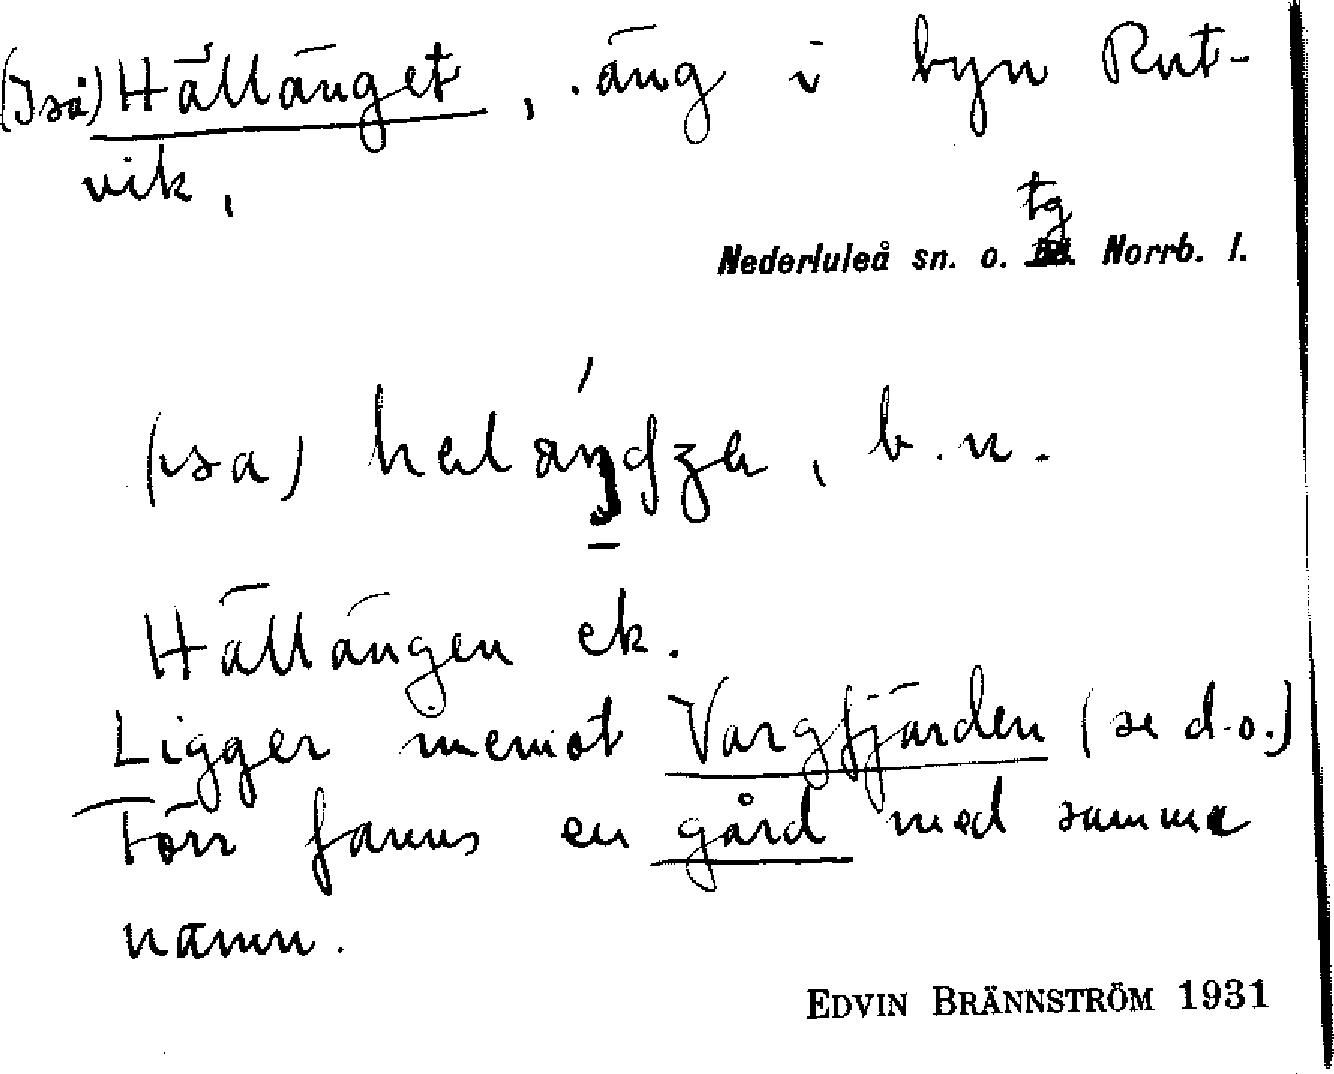 (Iså) Hällänget, äng i byn Rut-
vik,
tg
Nederluleå sn. o. Norrb. l.
(isa) , b. n.
Hällängen ek.
Ligger inemot Vargfjärden (se d.o.)
Förr fanns en gård med samma
namn.
EDVIN BRÄNNSTRÖM 1931